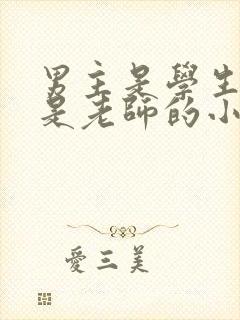 男主是學生
是老師的小
愛三美